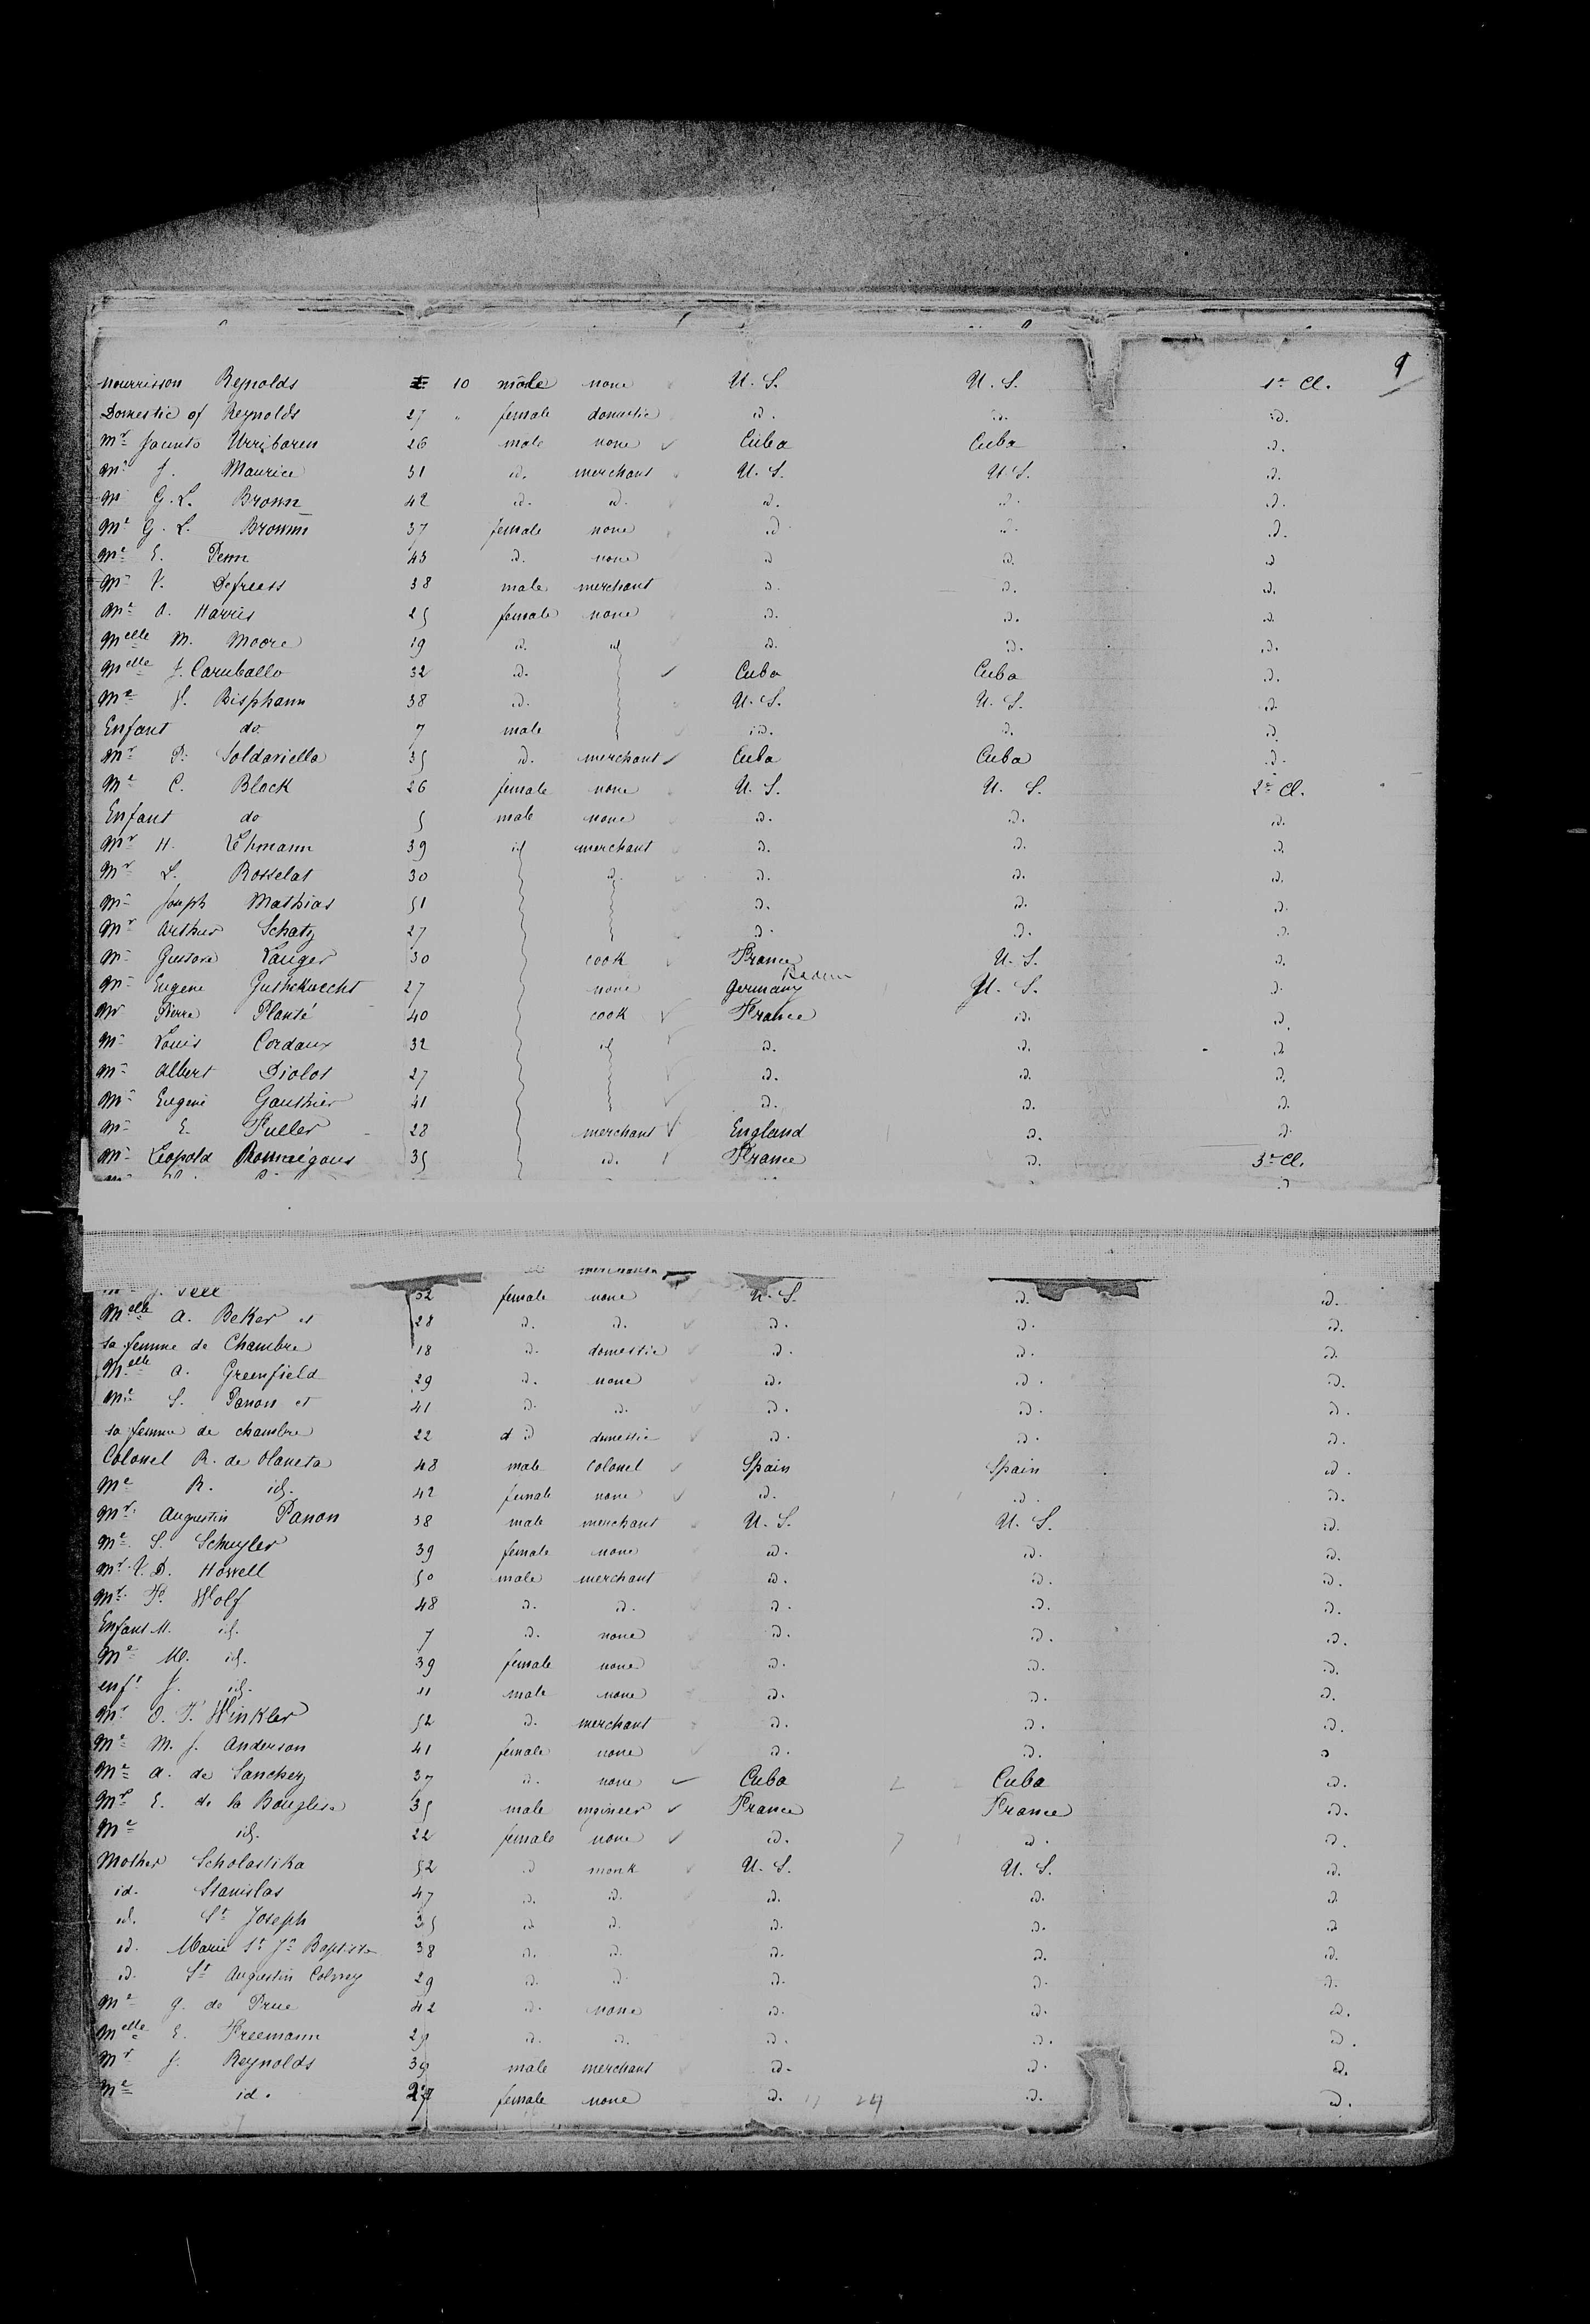 9
nourrisson Reynolds 10 male none U. S. U. S. 1re Cl.
Domestic of Reynolds 27 " female domestic id. id. id.
Mr Jacinto Urribaren 26 male none Cuba Cuba id.
Mr J. Maurice 31 id. merchant U. S. U. S. id.
Mr G. L. Brown 42 id. id. id. id. id.
Me G. L. Brown 37 female none id. id. id.
Me E. Penn 43 id. none id. id. id.
Mr V. Defreess 38 male merchant id. id. id.
Me A. Harris 25 female none id. id. id.
Melle M. Moore 19 id. id id. id. id.
Melle J. Caruballo 32 id. Cuba Cuba id.
Me J. Bisphann 38 id. U. S. U. S. id.
Enfant do 7 male id. id. id.
Mr D. Soldariella 35 id. merchant Cuba Cuba id.
Me C. Block 26 female none U. S. U. S. 2e Cl.
Enfant do 5 male none id. id. id.
Mr H. Lehmann 39 id merchant id. id. id.
Mr L. Rosselat 30 id. id. id. id.
Mr Joseph Mathias 51 id. id. id.
Mr Arthur Schatz 27 id. id. id.
Mr Gustave Lauger 30 cook France U. S. id.
Mr Eugene Gutheknecht 27 none Germany Baden U. S. id.
Mr Pierre Planté 40 cook France id. id.
Mr Louis Cordaux 32 id id. id. id.
Mr Albert Diolot 27 id. id. id.
Mr Eugene Gauthier 41 id. id. id.
Mr E. Fuller 28 merchant England id. id.
Mr Leopold 35 id. France id. 3e Cl.
id
merchant
32 female none U. S. id. id.
Melle A. Beker et 28 id. id. id. id. id.
sa femme de Chambre 18 id. domestic id. id. id.
Melle A. Greenfield 29 id. none id. id. id.
Me S. Panon et 41 id. id. id. id. id.
sa femme de chambre 22 id domestic id. id. id.
Colonel R. de Olaneta 48 male Colonel Spain Spain id.
Me R. id. 42 female none id. id. id.
Mr Augustin Panon 38 male merchant U. S. U. S. id.
Me S. Schuyler 39 female none id. id. id.
Mr V. D. Howell 50 male merchant id. id. id.
Mr F. Wolf 48 id. id. id. id. id.
Enfant M. id. 7 id. none id. id. id.
Me M. id. 39 female none id. id. id.
enft J. id. 11 male none id. id. id.
Mr O. F. Winkler 52 id. merchant id. id. id.
Me M. J. Anderson 41 female none id. id. id
Me A. de Sanchez 37 id. none Cuba Cuba id.
Mr E. de la Bouglise 35 male engineer France France id.
Me id. 22 female none id. id. id.
Mother Scholastika 52 id monk U. S. U. S. id.
id. Stanislas 47 id. id. id. id. id
id. St Joseph 35 id id. id. id. id
id. Marie St Jn Baptiste 38 id. id. id. id. id.
id. St Augustin 29 id. id. id. id. id.
Me G. de Prue 42 id. none id. id. id.
Melle E. Freemann 29 id. id. id. id. id.
Mr J. Reynolds 39 male merchant id. id. id.
Me id. 27 female none id. 24 id. id.